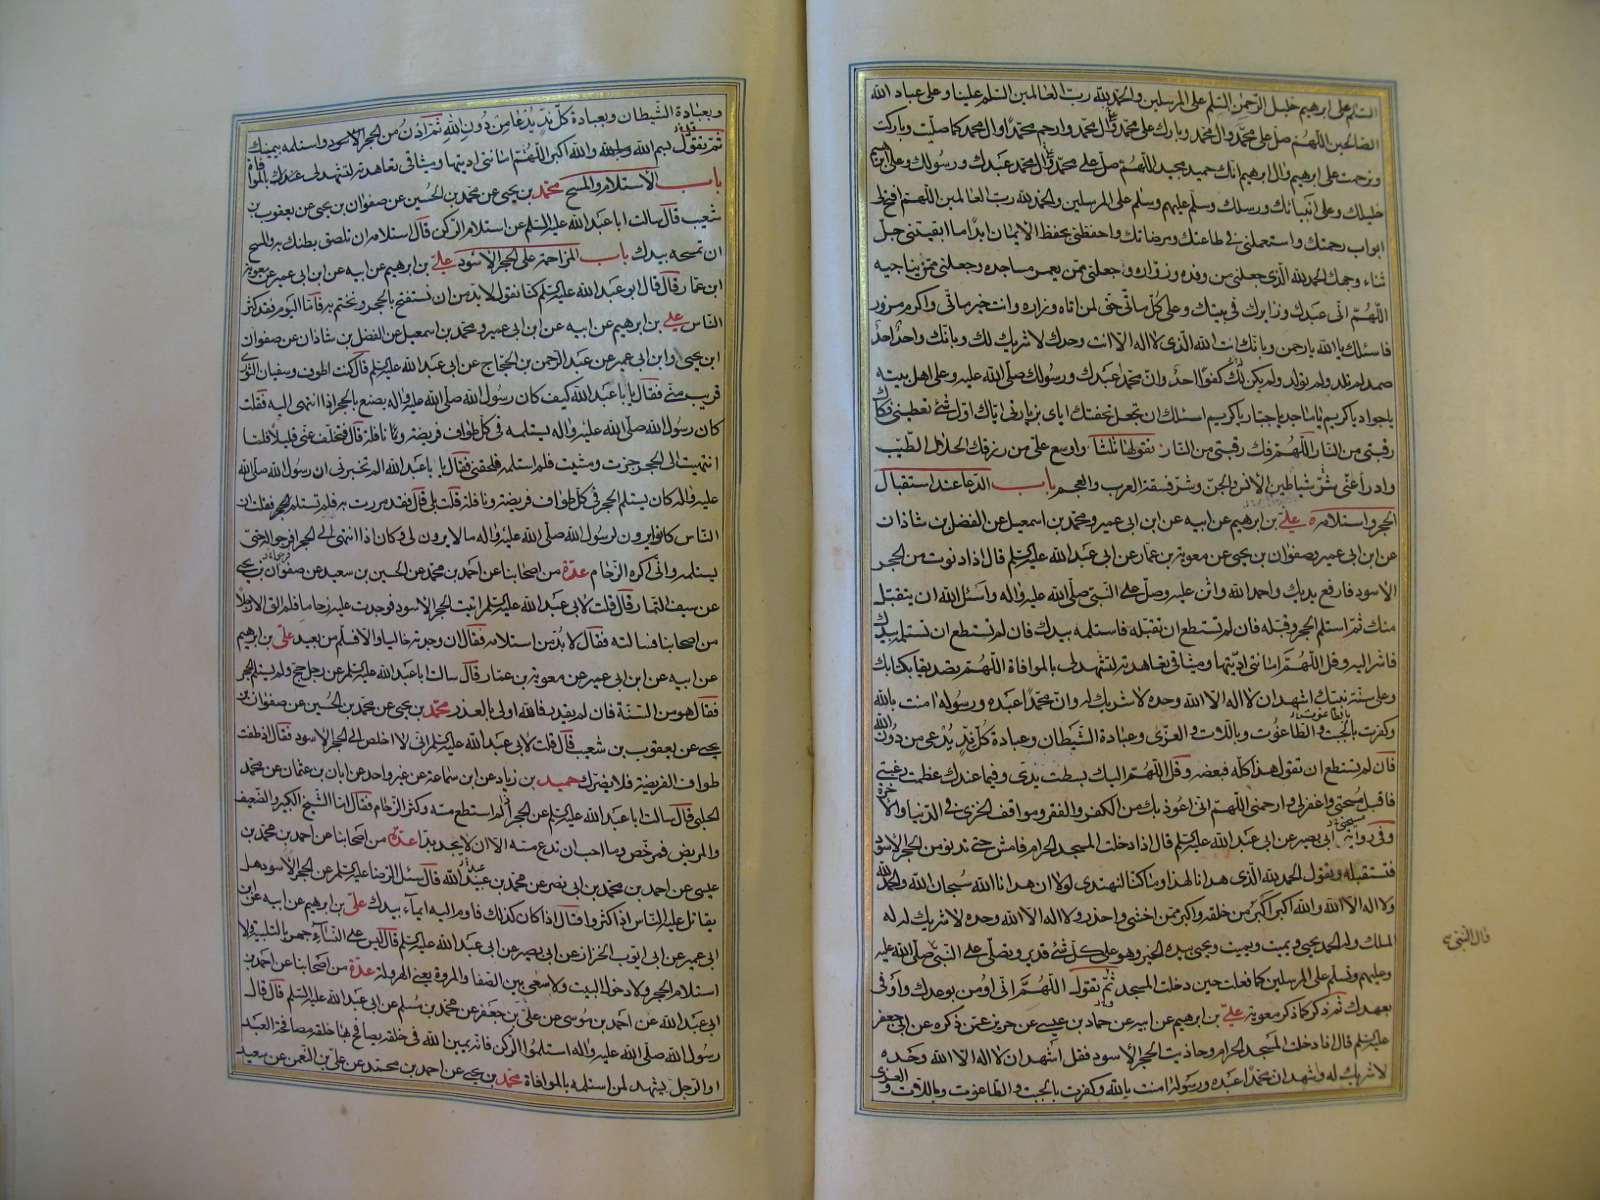 السلم على ابرهيم خليل الرحمن السلم على المرسلين والحمد لله رب العالمين السلم علينا وعلى عباد الله
الصالحين اللهم صل على محمد وال محمد وبارك على محمد وال محمد وارحم محمدا وال محمد كما صليت وباركت
وترحمت على ابرهيم وال ابرهيم انك حميد مجيد اللهم صل على محمد وال محمد عبدك ورسولك وعلى ابرهيم
خليلك وعلى انبيائك ورسلك وسلم عليهم وسلم على المرسلين والحمد لله رب العالمين اللهم افتح لى
ابواب رحمتك واستعملنى فى طاعتك ومرضاتك واحفظنى بحفظ الايمان ابدا ما ابقيتنى جل
ثناء وجهك الحمد لله الذى جعلنى من وفده وزواره وجعلنى ممن يعمر مساجده وجعلنى ممن يناجيه
اللهم انى عبدك وزايرك فى بيتك وعلى كل ماتى حق لمن اتاه وزاره وانت خير ماتى واكرم مزور
فاسئلك يا الله يا رحمن وبانك انت الله الذى لا اله الا انت وحدك لا شريك لك وبانك واحد احد
صمد لم تلد ولم تولد ولم يكن لك كفوا احد وان محمدا عبدك ورسولك صلى الله عليه وعلى اهل بيته
يا جواد يا كريم يا ماجد يا جبار يا كريم اسئلك ان تجعل تحفتك اياى بزيارتى اياك اول شئ تعطينى فكاك
رقبتى من النار اللهم فك رقبتى من النار تقولها ثلثا واوسع على من رزقك الحلال الطيب
وادرا عنى شر شياطين الانس والجن وشر فسقة العرب والعجم باب الدعا عند استقبال
الحجر واستلامه على بن ابرهيم عن ابيه عن ابن ابى عمير ومحمد بن اسمعيل عن الفضل بن شاذان
عن ابن ابى عمير وصفوان بن يحيى عن معوية بن عمار عن ابى عبد الله عليه السلم قال اذا دنوت من الحجر
الاسود فارفع يديك واحمد الله واثن عليه وصل على النبى صلى الله عليه واله واسئل الله ان يتقبل
منك ثم استلم الحجر وقبله فان لم تستطع ان تقبله فاستلمه بيدك فان لم تستطع ان تستلمه بيدك
فاشر اليه وقل اللهم امانتى اديتها وميثاقى تعاهدته لتشهد لى بالموافاة اللهم تصديقا بكتابك
وعلى سنة نبيك اشهد ان لا اله الا الله وحده لا شريك له وان محمدا عبده ورسوله امنت بالله
وكفرت بالجبت والطاغوت وباللات والعزى وعبادة الشيطان وعبادة كل ند يدعى من دون الله
فان لم تستطع ان تقول هذا كله فبعضه وقل اللهم اليك بسطت يدى وفيما عندك عظمت رغبتى
فاقبل سبحتى واغفر لى وارحمنى اللهم انى اعوذ بك من الكفر والفقر ومواقف الخزى فى الدنيا والاخرة
وفى رواية ابى بصير عن ابى عبد الله عليه السلم قال اذا دخلت المسجد الحرام فامش حتى تدنو من الحجر الاسود
فتستقبله وتقول الحمد لله الذى هدانا لهذا وما كنا لنهتدى لولا ان هدانا الله سبحان الله والحمد لله
ولا اله الا الله والله اكبر اكبر من خلقه واكبر ممن اخشى واحذر ولا اله الا الله وحده لا شريك له له
الملك وله الحمد يحيى ويميت ويميت ويحيى بيده الخير وهو على كل شئ قدير وتصلى على النبى صلى الله عليه
وعليهم وتسلم على المرسلين كما فعلت حين دخلت المسجد ثم تقول اللهم انى اومن بوعدك واوفى
بعهدك ثم ذكر كما ذكر معوية على بن ابرهيم عن ابيه عن حماد بن عيسى عن حريز عمن ذكره عن ابى جعفر
عليه السلم قال اذا دخلت المسجد الحرام وحاذيت الحجر الاسود فقل اشهد ان لا اله الا الله وحده
لا شريك له واشهد ان محمدا عبده ورسوله امنت بالله وكفرت بالجبت والطاغوت وباللات والعزى
قال النبى
وبعبادة الشيطان وبعبادة كل ند يدعا من دون الله ثم اذن من الحجر الاسود واستلمه بيمينك
ثم تقول بسم الله والله اكبر اللهم امانتى اديتها وميثاقى تعاهدته لتشهد لى عندك بالموافاة
باب الاستلام والمسح محمد بن يحيى عن محمد بن الحسين عن صفوان بن يحيى عن يعقوب بن
شعيب قال سالت ابا عبد الله عليه السلم عن استلام الركن قال استلامه ان تلصق بطنك به والمسح
ان تمسحه بيدك باب المزاحمة على الحجر الاسود على بن ابرهيم عن ابيه عن ابن ابى عمير عن معوية
ابن عمار قال قال ابو عبد الله عليه السلم كنا نقول لا بد من ان نستفتح بالحجر ونختم به فاما اليوم فقد كثر
الناس على بن ابرهيم عن ابيه عن ابن ابى عمير ومحمد بن اسمعيل عن الفضل بن شاذان عن صفوان
ابن يحيى وابن ابى عمير عن عبد الرحمن بن الحجاج عن ابى عبد الله عليه السلم قال كنت اطوف وسفيان الثورى
قريب منى فقال يا با عبد الله كيف كان رسول الله صلى الله عليه واله يصنع بالحجر اذا انتهى اليه فقلت
كان رسول الله صلى الله عليه واله يستلمه فى كل طواف فريضة ونافلة قال فتخلف عنى قليلا فلما
انتهيت الى الحجر جزت ومشيت فلم استلمه فلحقنى فقال يا با عبد الله الم تخبرنى ان رسول الله صلى الله
عليه واله كان يستلم الحجر فى كل طواف فريضة ونافلة قلت بلى قال فقد مررت به فلم تستلم الحجر فقلت ان
الناس كانوا يرون لرسول الله صلى الله عليه واله ما لا يرون لى وكان اذا انتهى الى الحجر افرجوا له حتى
يستلمه وانى اكره الزحام عدة من اصحابنا عن احمد بن محمد عن الحسين بن سعيد عن صفوان بن يحيى
عن سيف التمار قال قلت لابى عبد الله عليه السلم اتيت الحجر الاسود فوجدت عليه زحاما فلم الق الا رجلا
من اصحابنا فسالته فقال لا بد من استلامه فقال ان وجدته خاليا والا فسلم من بعيد على بن ابرهيم
عن ابيه عن ابن ابى عمير عن معوية بن عمار قال سالت ابا عبد الله عليه السلم عن رجل حج ولم يستلم الحجر
فقال هو من السنة فان لم يقدر فالله اولى بالعذر محمد بن يحيى عن محمد بن الحسين عن صفوان بن
يحيى عن يعقوب بن شعيب قال قلت لابى عبد الله عليه السلم انى لا اخلص الى الحجر الاسود فقال اذا طفت
طواف الفريضة فلا يضرك حميد بن زياد عن ابن سماعة عن غير واحد عن ابان بن عثمان عن محمد
الحلبى قال سالت ابا عبد الله عليه السلم عن الحجر اذا لم استطع مسه وكثر الزحام فقال اما الشيخ الكبير والضعيف
والمريض فمرخص وما احب ان تدع مسه الا ان لا تجد بدا عدة من اصحابنا عن احمد بن محمد بن
عيسى عن احمد بن محمد بن ابى نصر عن محمد بن عبيد الله قال سئل الرضا عليه السلم عن الحجر الاسود هل
يقاتل عليه الناس اذا كثروا قال اذا كان كذلك فاوم اليه ايماء بيدك على بن ابرهيم عن ابيه عن ابن
ابى عمير عن ابى ايوب الخزاز عن ابى بصير عن ابى عبد الله عليه السلم قال ليس على النساء جهر بالتلبية ولا
استلام الحجر ولا دخول البيت ولا سعى بين الصفا والمروة يعنى الهرولة عدة من اصحابنا عن احمد بن
ابى عبد الله عن احمد بن موسى عن على بن جعفر عن محمد بن مسلم عن ابى عبد الله عليه السلم قال قال
رسول الله صلى الله عليه واله استلموا الركن فانه يمين الله فى خلقه يصافح بها خلقه مصافحة العبد
او الرجل يشهد لمن استلمه بالموافاة محمد بن يحيى عن احمد بن محمد عن على بن النعمن عن سعيد